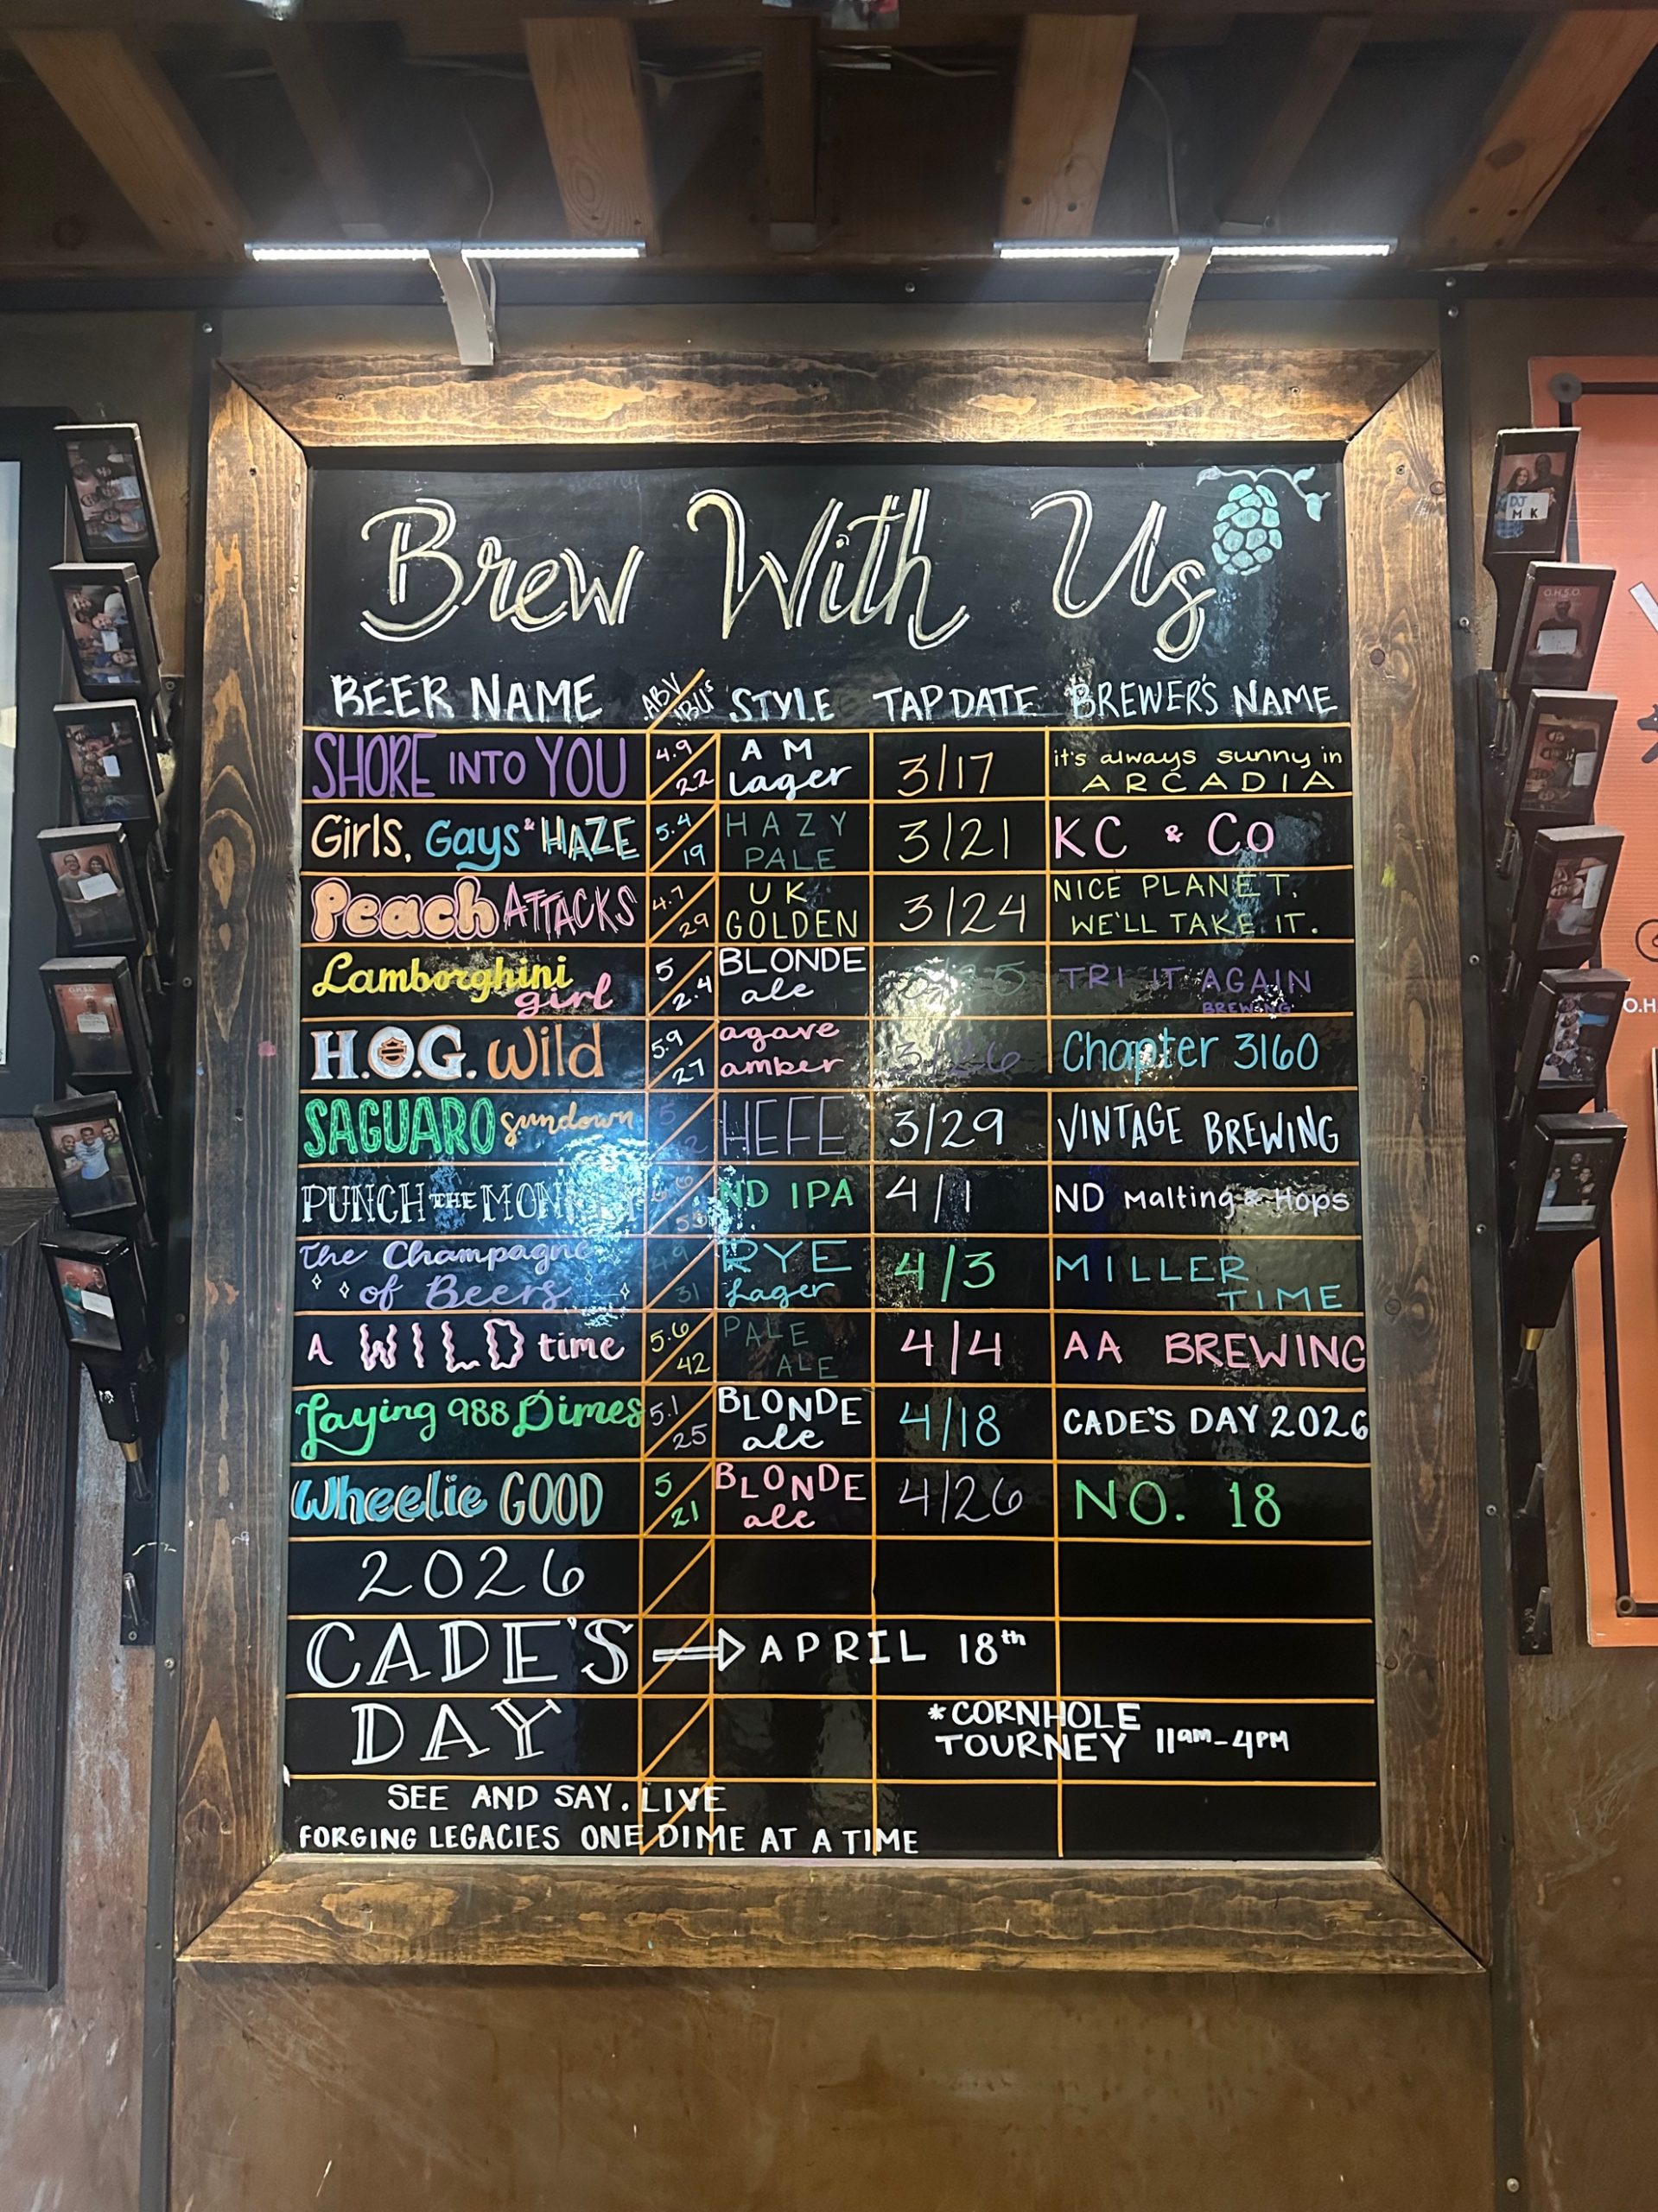 Brew With Us
BEER NAME ABV/IBU's STYLE TAP DATE BREWER'S NAME
SHORE INTO YOU 4.9/22 AM Lager 3/17 it's always sunny in ARCADIA
Girls, Gays & HAZE 5.4/19 HAZY PALE 3/21 KC & Co
Peach ATTACKS 4.7/29 UK GOLDEN 3/24 NICE PLANET. WE'LL TAKE IT.
Lamborghini girl 5/2.4 BLONDE ale TRI IT AGAIN BREWING
H.O.G. Wild 5.9/27 agave amber 3/26 Chapter 3160
SAGUARO sundown HEFE 3/29 VINTAGE BREWING
PUNCH THE ND IPA 4/1 ND Malting & Hops
The Champagne of Beers 31 RYE Lager 4/3 MILLER TIME
A WILD time 5.6/42 PALE ALE 4/4 AA BREWING
Laying 988 Dimes 5.1/25 BLONDE ale 4/18 CADE'S DAY 2026
Wheelie GOOD 5/21 BLONDE ale 4/26 NO. 18
2026
CADE'S ⇒ APRIL 18th
DAY
*CORNHOLE
TOURNEY 11am-4PM
SEE AND SAY. LIVE
FORGING LEGACIES ONE DIME AT A TIME
DJ
M K
O.H.S.O.